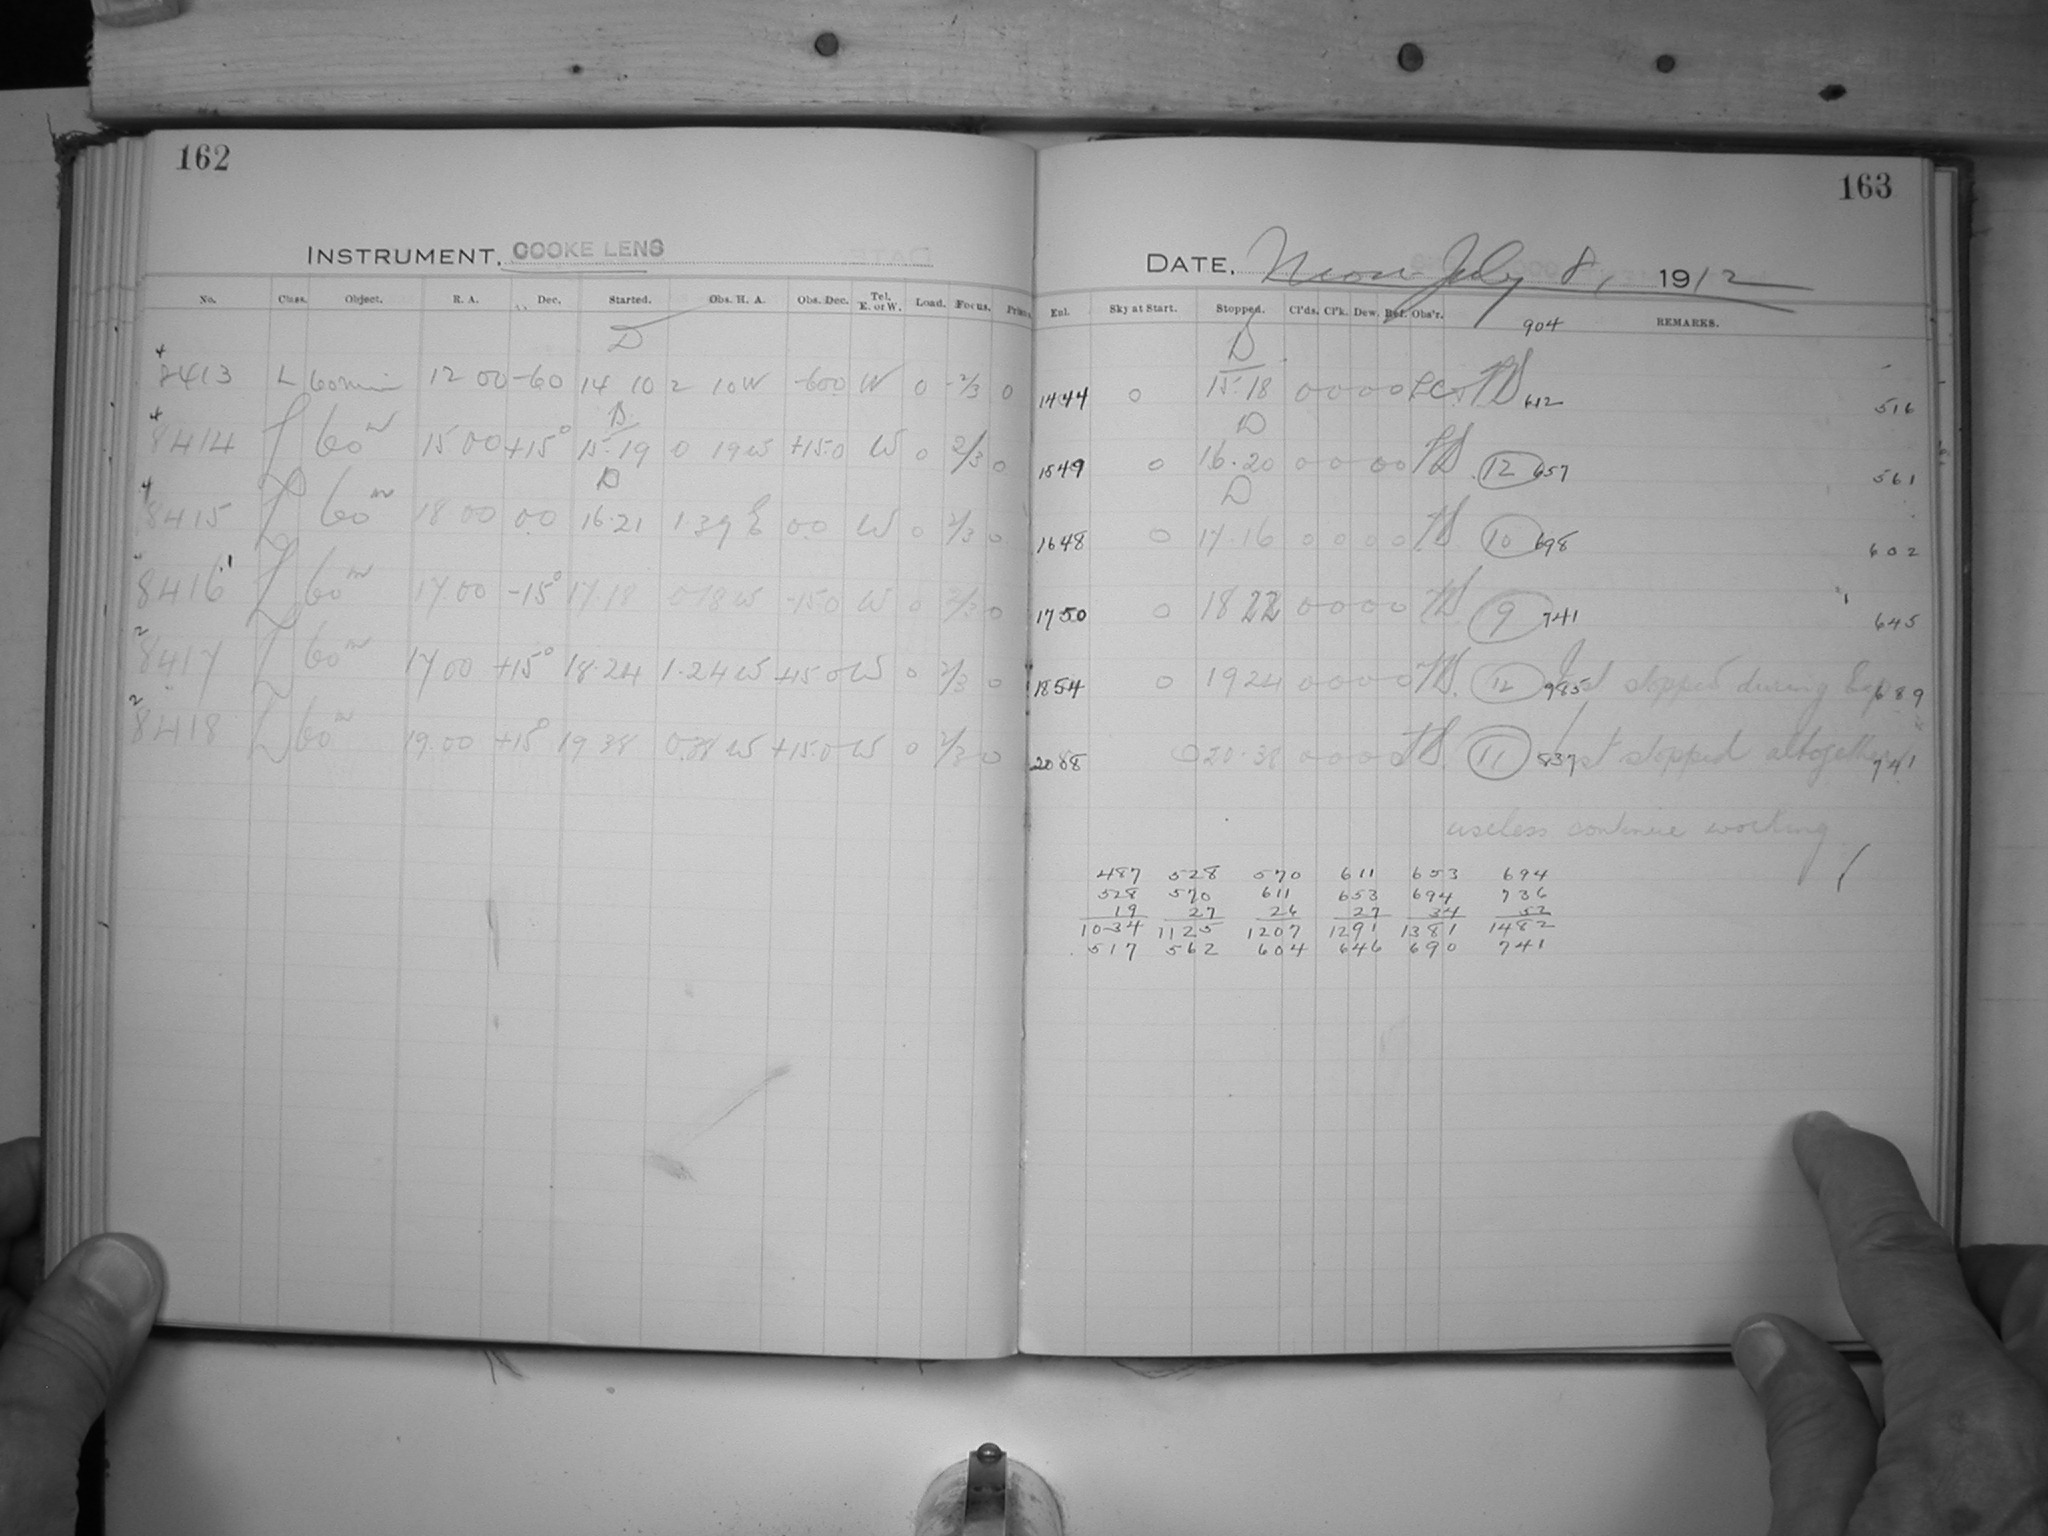 162
INSTRUMENT. COOKE LENS
No. Class. Object. R. A. Dec. Started. Obs. H. A. Obs. Dec. Tel. E. or W. Load. Focus.
D
4
8413 L 60 min 12 00 -60 14 10 2 10 W -600 W 0 -2/3 0
4 D
8414 L 60m 15 00 +15° 15.19 0 19 W +15.0 W 0 2/3 0
4 D
8415 L 60m 18 00 00 16.21 1.39 E 00 W 0 2/3 0
8416 L 60m 17.00 -15° 17.18 0 18 W -150 W 0 2/3 0
2
8417 L 60m 17 00 +15° 18.24 1.24 W +15 0 W 0 2/3 0
2
8418 L 60m 19.00 +15° 19 38 0.38 W +15.0 W 0 2/3 0
163
DATE, Mon July 8, 1912
Eql. Sky at Start. Stopped. Cl'ds. Cl'k. Dew. Ref. Obs'r. REMARKS.
904
D
1444 0 15.18 0 0 0 0 612 516
D
1549 0 16.20 0 0 0 0 12 657 561
D
1648 0 17.16 0 0 0 0 10 698 602
1750 0 18 22 0 0 0 0 9 741 645
1854 0 19 24 0 0 0 0 12 985 stopped during Exp 689
2088 0 20.38 0 0 0 0 11 837 stopped altogether 741
useless continue working
487 528 570 611 653 694
528 570 611 653 694 736
19 27 26 27 34 52
1034 1125 1207 1291 1381 1482
517 562 604 646 690 741